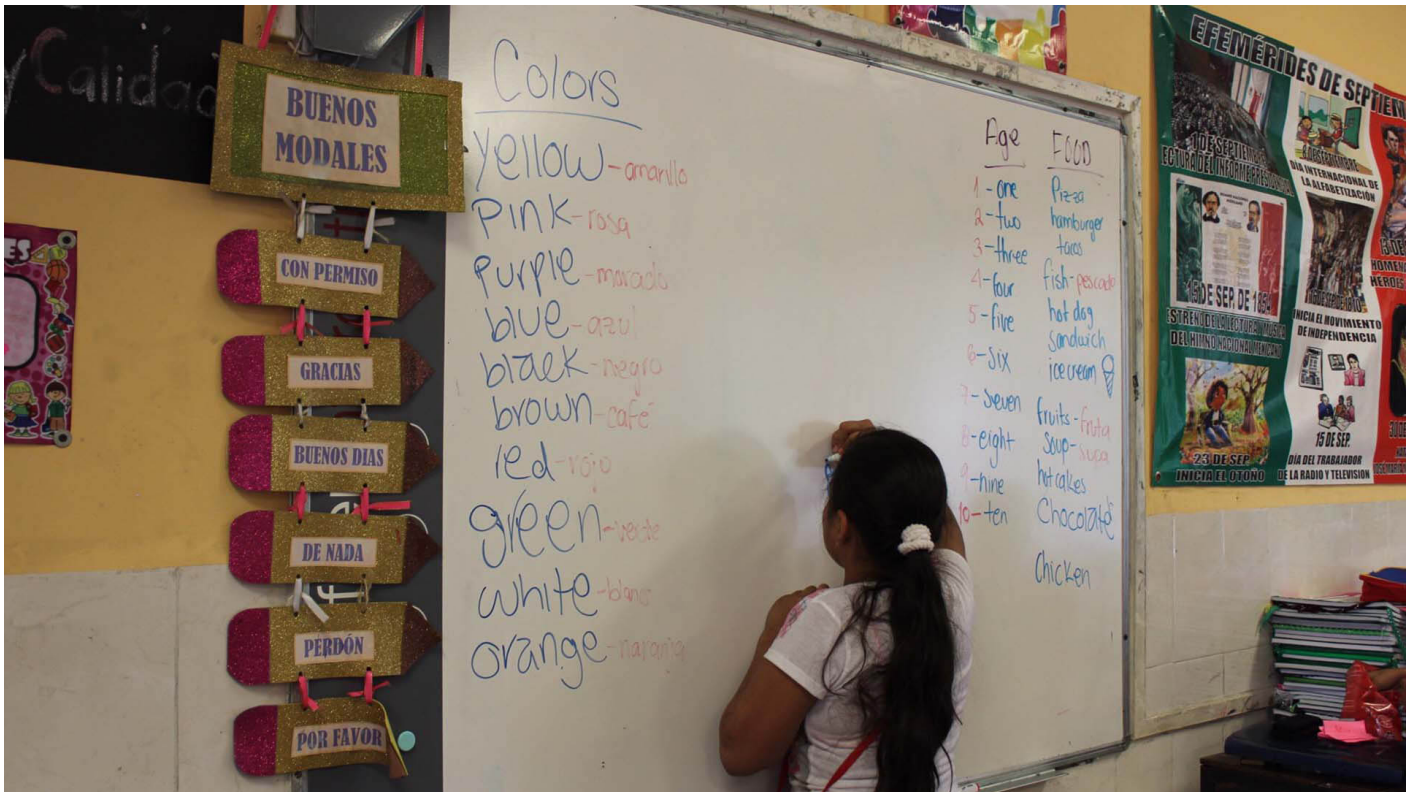 y Calidad
BUENOS
MODALES
CON PERMISO
GRACIAS
BUENOS DIAS
DE NADA
PERDÓN
POR FAVOR
Colors
yellow-amarillo
Pink-rosa
Purple-morado
blue-azul
black-negro
brown-café
red-rojo
green-verde
white-blanco
orange-naranja
Age
1-one
2-two
3-three
4-four
5-five
6-six
7-seven
8-eight
9-nine
10-ten
FOOD
Pizza
hamburger
tacos
fish-pescado
hot dog
sandwich
ice cream
fruits-fruta
soup-supa
hotcakes
Chocolates
Chicken
EFEMÉRIDES DE SEPTIEM
1 DE SEPTIEMBRE
LECTURA DEL INFORME PRESIDENCIAL
15 DE SEP. DE 1854
ESTRENO DE LA LECTURA Y MUSICA
DEL HIMNO NACIONAL MEXICANO
23 DE SEP.
INICIA EL OTOÑO
SEPTIEMBRE
DIA INTERNACIONAL DE
LA ALFABETIZACIÓN
INICIA EL MOVIMIENTO
DE INDEPENDENCIA
15 DE SEP.
DÍA DEL TRABAJADOR
DE LA RADIO Y TELEVISION